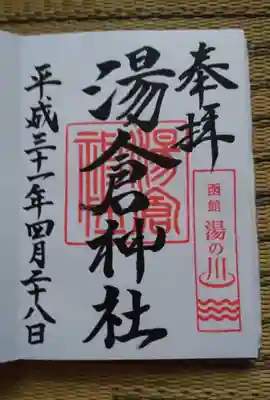 奉拝
函館 湯の川
湯倉神社
湯倉神社
平成三十一年四月二十八日